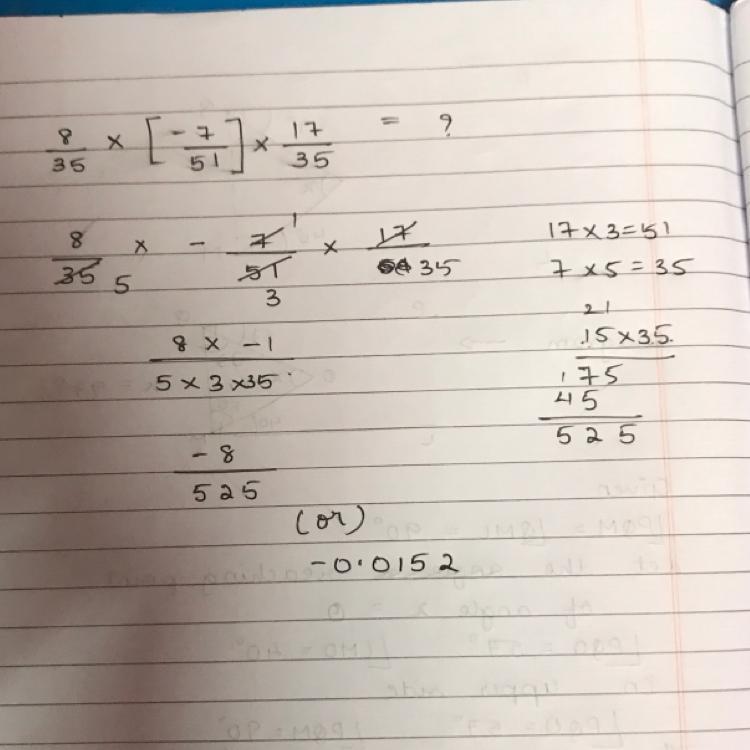 8/35 × [-7/51] × 17/35 = ?
8/35 5 × - 7/51 1 3 × 17/35
17 × 3 = 51
7 × 5 = 35
8 × -1 / 5 × 3 × 35
21
15 × 35
175
45
525
-8/525
(or)
-0.0152